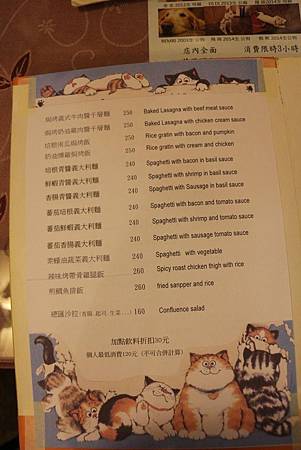 店內全面 消費限時3小時
焗烤義式牛肉醬千層麵 250 Baked Lasagna with beef meat sauce
焗烤奶油雞肉醬千層麵 250 Baked Lasagna with chicken cream sauce
培根南瓜焗烤飯 250 Rice gratin with bacon and pumpkin
奶油燻雞焗烤飯 250 Rice gratin with cream and chicken
培根青醬義大利麵 240 Spaghetti with bacon in basil sauce
鮮蝦青醬義大利麵 240 Spaghetti with shrimp in basil sauce
香腸青醬義大利麵 240 Spaghetti with Sausage in basil sauce
蕃茄培根義大利麵 240 Spaghetti with bacon and tomato sauce
蕃茄鮮蝦義大利麵 240 Spaghetti with shrimp and tomato sauce
蕃茄香腸義大利麵 240 Spaghetti with sausage tomato sauce
素雞油蔬菜義大利麵 240 Spaghetti with vegetable
辣味烤帶骨雞腿飯 260 Spicy roast chicken thigh with rice
煎鯛魚排飯 260 fried sanpper and rice
總匯沙拉(青菜.起司.生菜....) 160 Confluence salad
加點飲料折扣30元
個人最低消費120元 (不可合併計算)